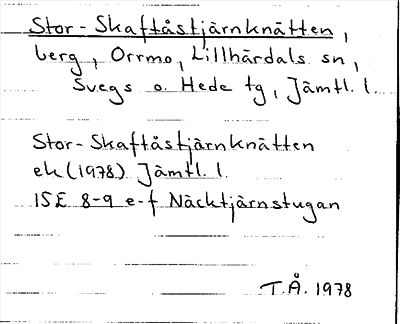 Stor-Skaftåstjärnknätten,
berg, Orrmo, Lillhärdals sn,
Svegs o. Hede tg, Jämtl. l.
Stor-Skaftåstjärnknätten
ek (1978) Jämtl. l.
15E 8-9 e-f Näcktjärnstugan
T.Å. 1978